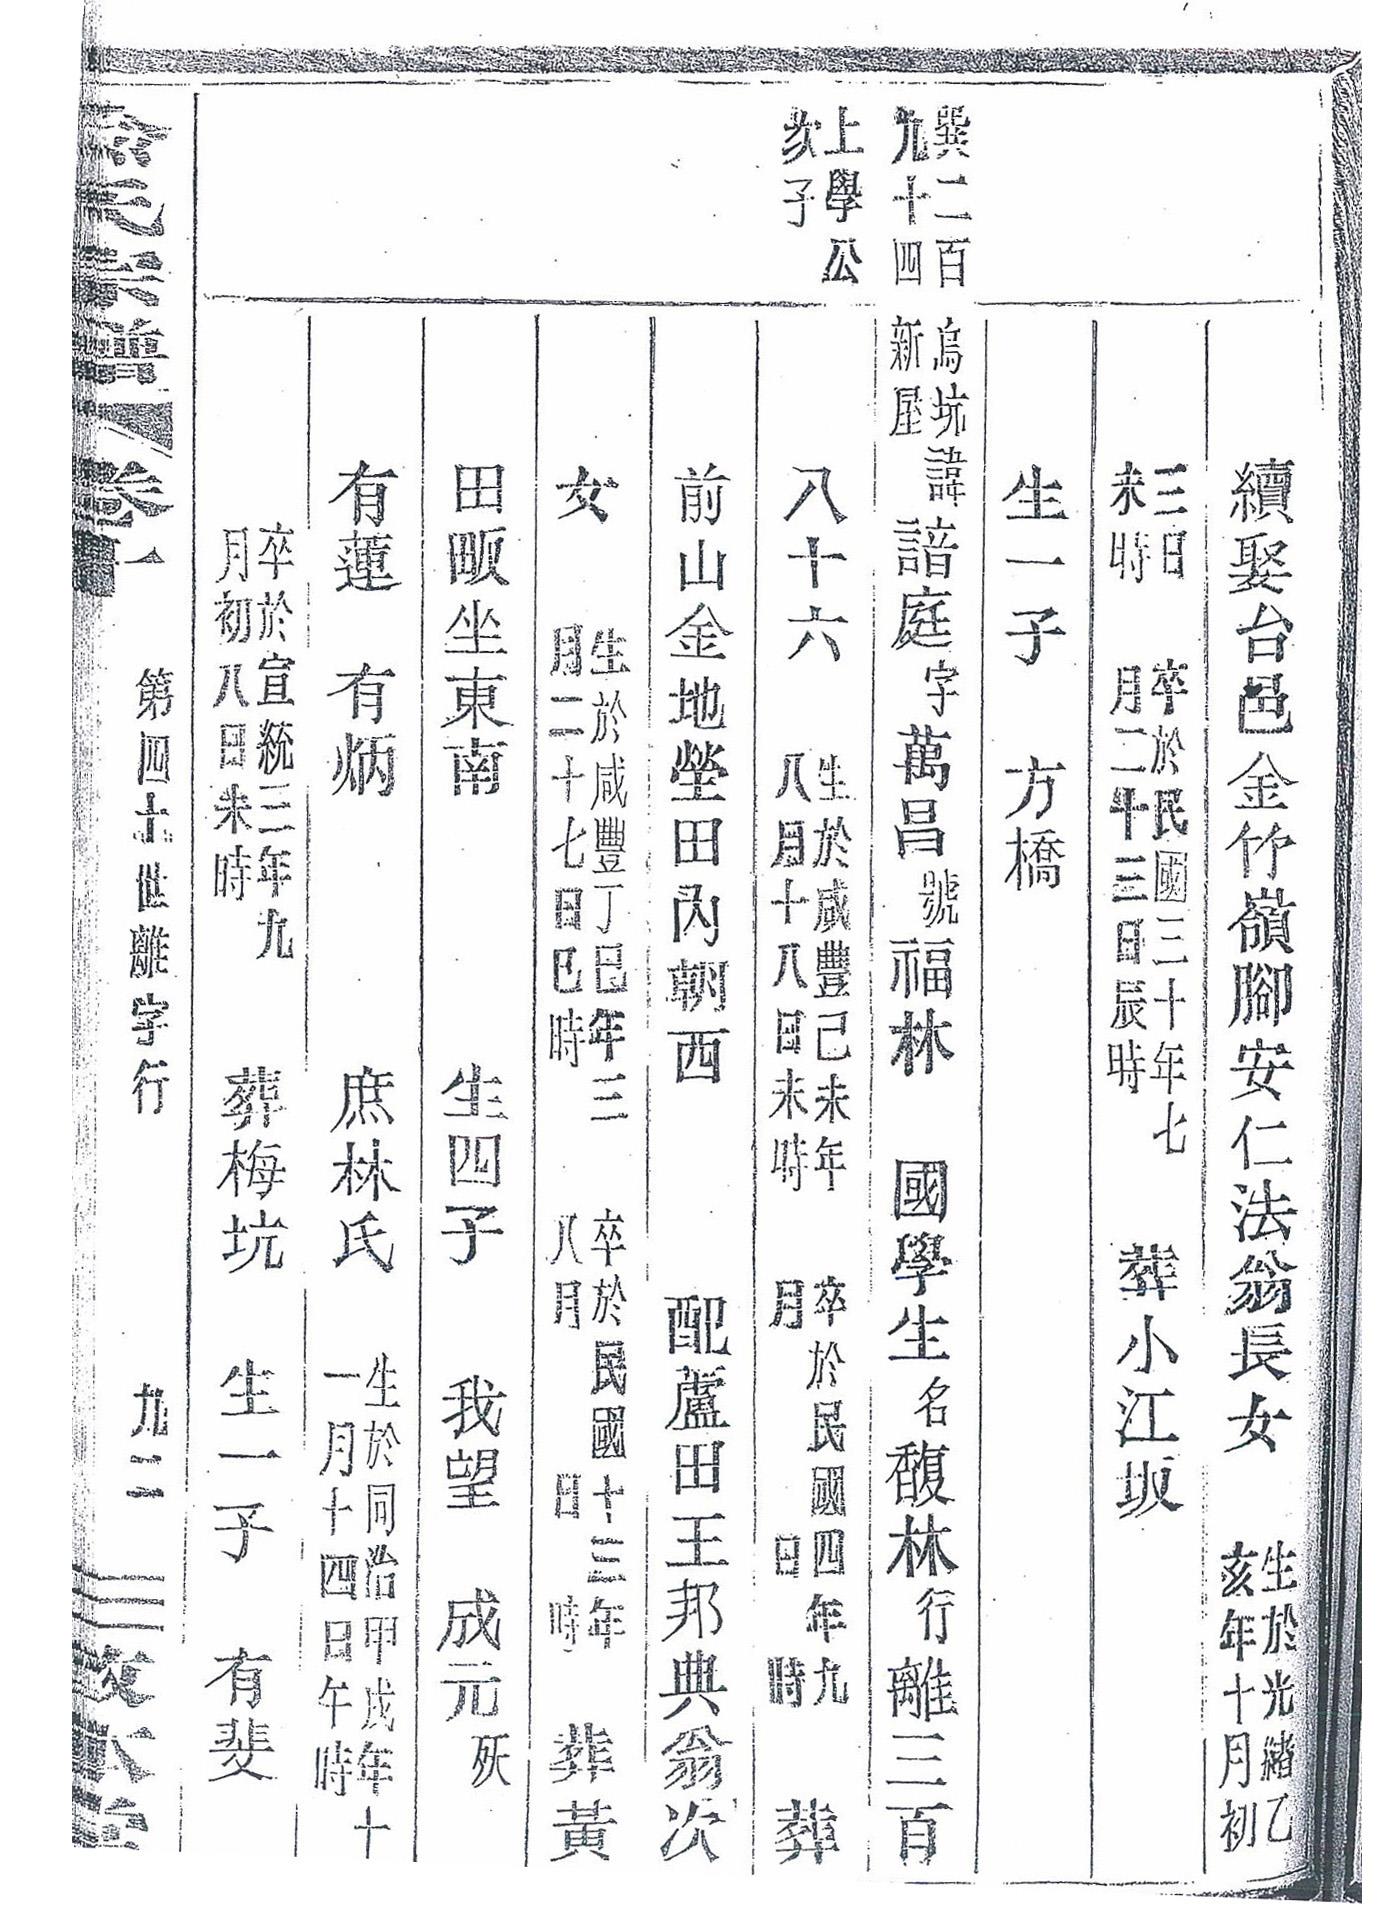 續娶台邑金竹嶺腳安仁法翁長女 生於光緒乙亥年十月初
三日未時 卒於民國三十年七月二十三日辰時 葬小江坂
生一子 方橋
巽二百九十四
上學公次子
烏坑新屋 諱諳庭字萬昌號福林 國學生名馥林行離三百
八十六 生於咸豐己未年八月十八日未時 卒於民國四年九月 日 時 葬
前山金地塋田內朝西 配蘆田王邦典翁次
女 生於咸豐丁巳年三月二十七日巳時 卒於民國十三年八月 日 時 葬黃
田畈坐東南 生四子 我望 成元殀
有蓮 有炳 庶林氏 生於同治甲戌年十一月十四日午時
卒於宣統三年九月初八日未時 葬梅坑 生一子 有斐
氏宗譜 卷十 第四十世離字行 九二 敦本堂